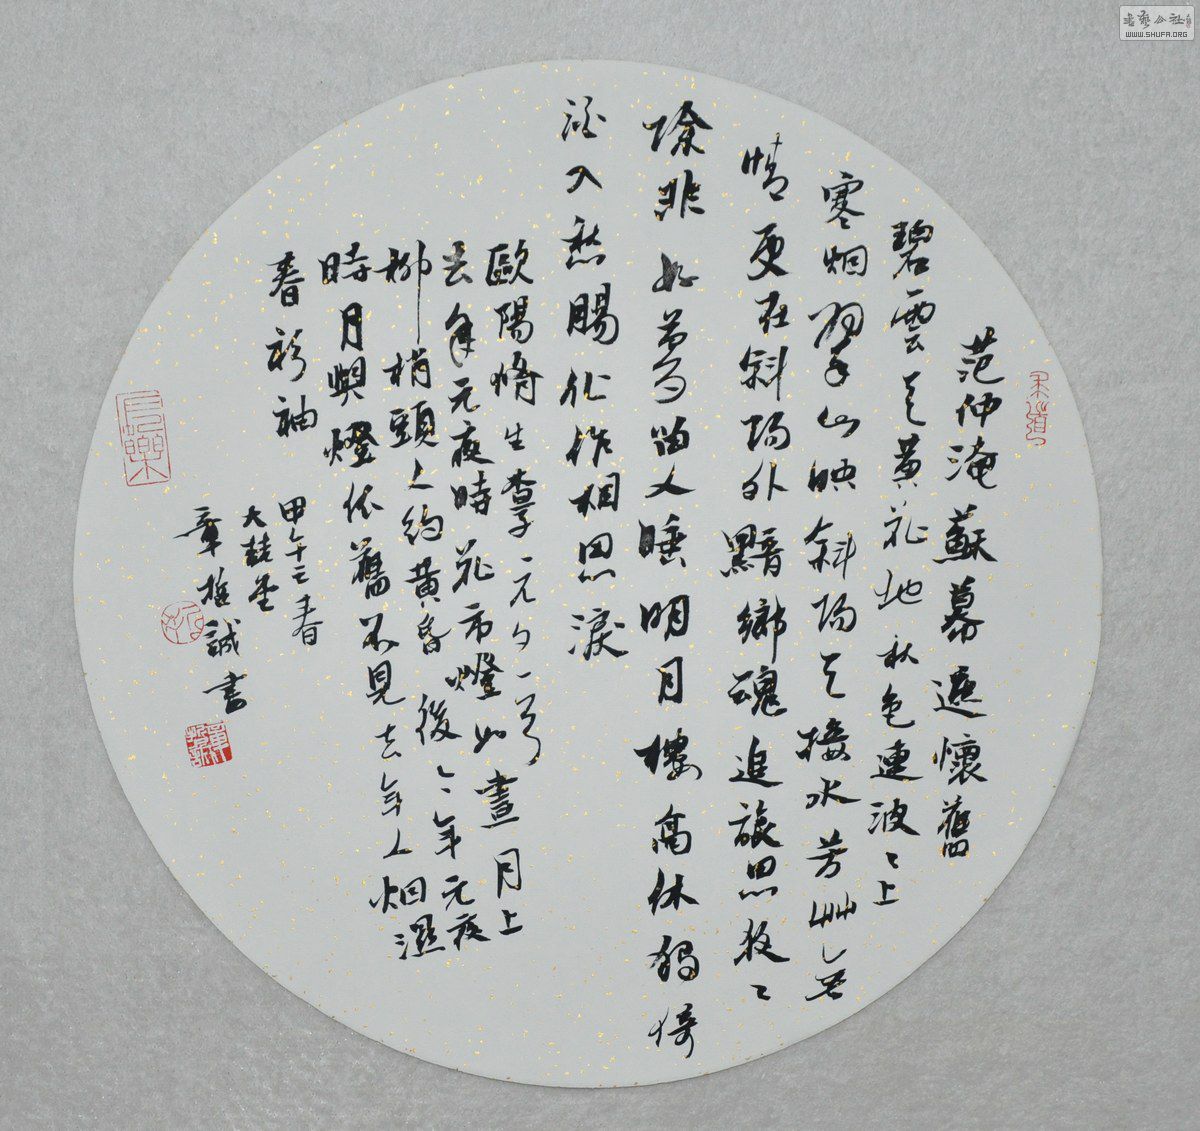 范仲淹蘇幕遮懷舊
碧雲天黃花地秋色連波〻上
寒烟翠山映斜陽天接水芳艸無
情更在斜陽外黯鄉魂追旅思夜〻
除非好夢留人睡明月樓高休獨倚
酒入愁腸化作相思淚
歐陽脩生查子元夕
去年元夜時花市燈如晝月上
柳梢頭人約黃昏後今年元夜
時月與燈依舊不見去年人烟濕
春衫袖
甲午之春
大
章誠書
WWW.SHUFA.ORG